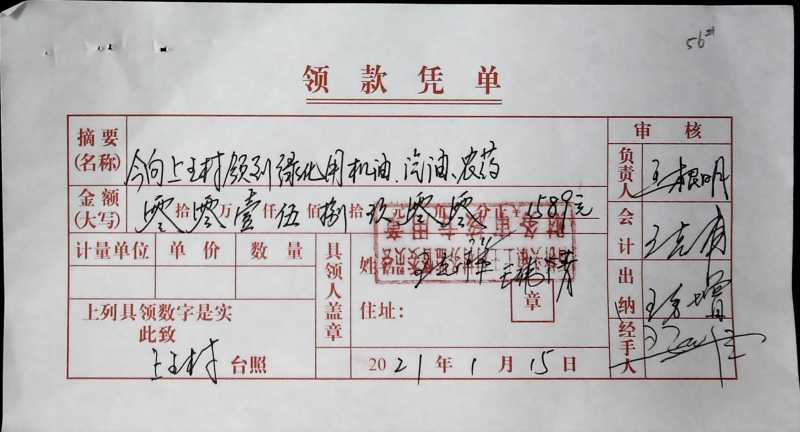 56#
领款凭单
摘要(名称) 今向上王村领到绿化用机油、汽油、农药
审核
金额(大写) 零拾零万壹仟伍佰捌拾玖元零角零分正¥ 1589元
负责人 王根明
计量单位 单价 数量
具领人盖章
姓名
会计 王克勇
财务审验专用章
住址:
章
出纳
上列具领数字是实
此致
上王村 台照
2021年1月15日
经手人